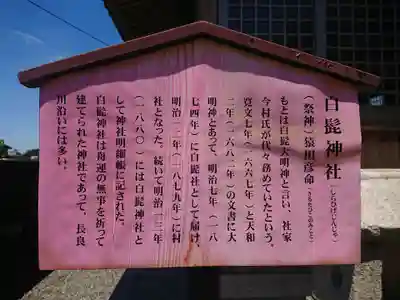 白髭神社(しらひげじんじゃ)
(祭神)猿田彦命(さるたひこのみこと)
もとは白髭大明神と言い、社家
今村氏が代々務めていたという。
寛文七年(一六六七年)と天和
二年(一六八二年)の文書に大
明神とあって、明治七年(一八
七四年)に白髭社として届け、
明治一二年(一八七九年)に村
社となった。続いて明治一三年
(一八八〇)には白髭神社と
して神社明細帳に記された。
白髭神社は海運の無事を祈って
建てられた神社であって、長良
川沿いには多い。